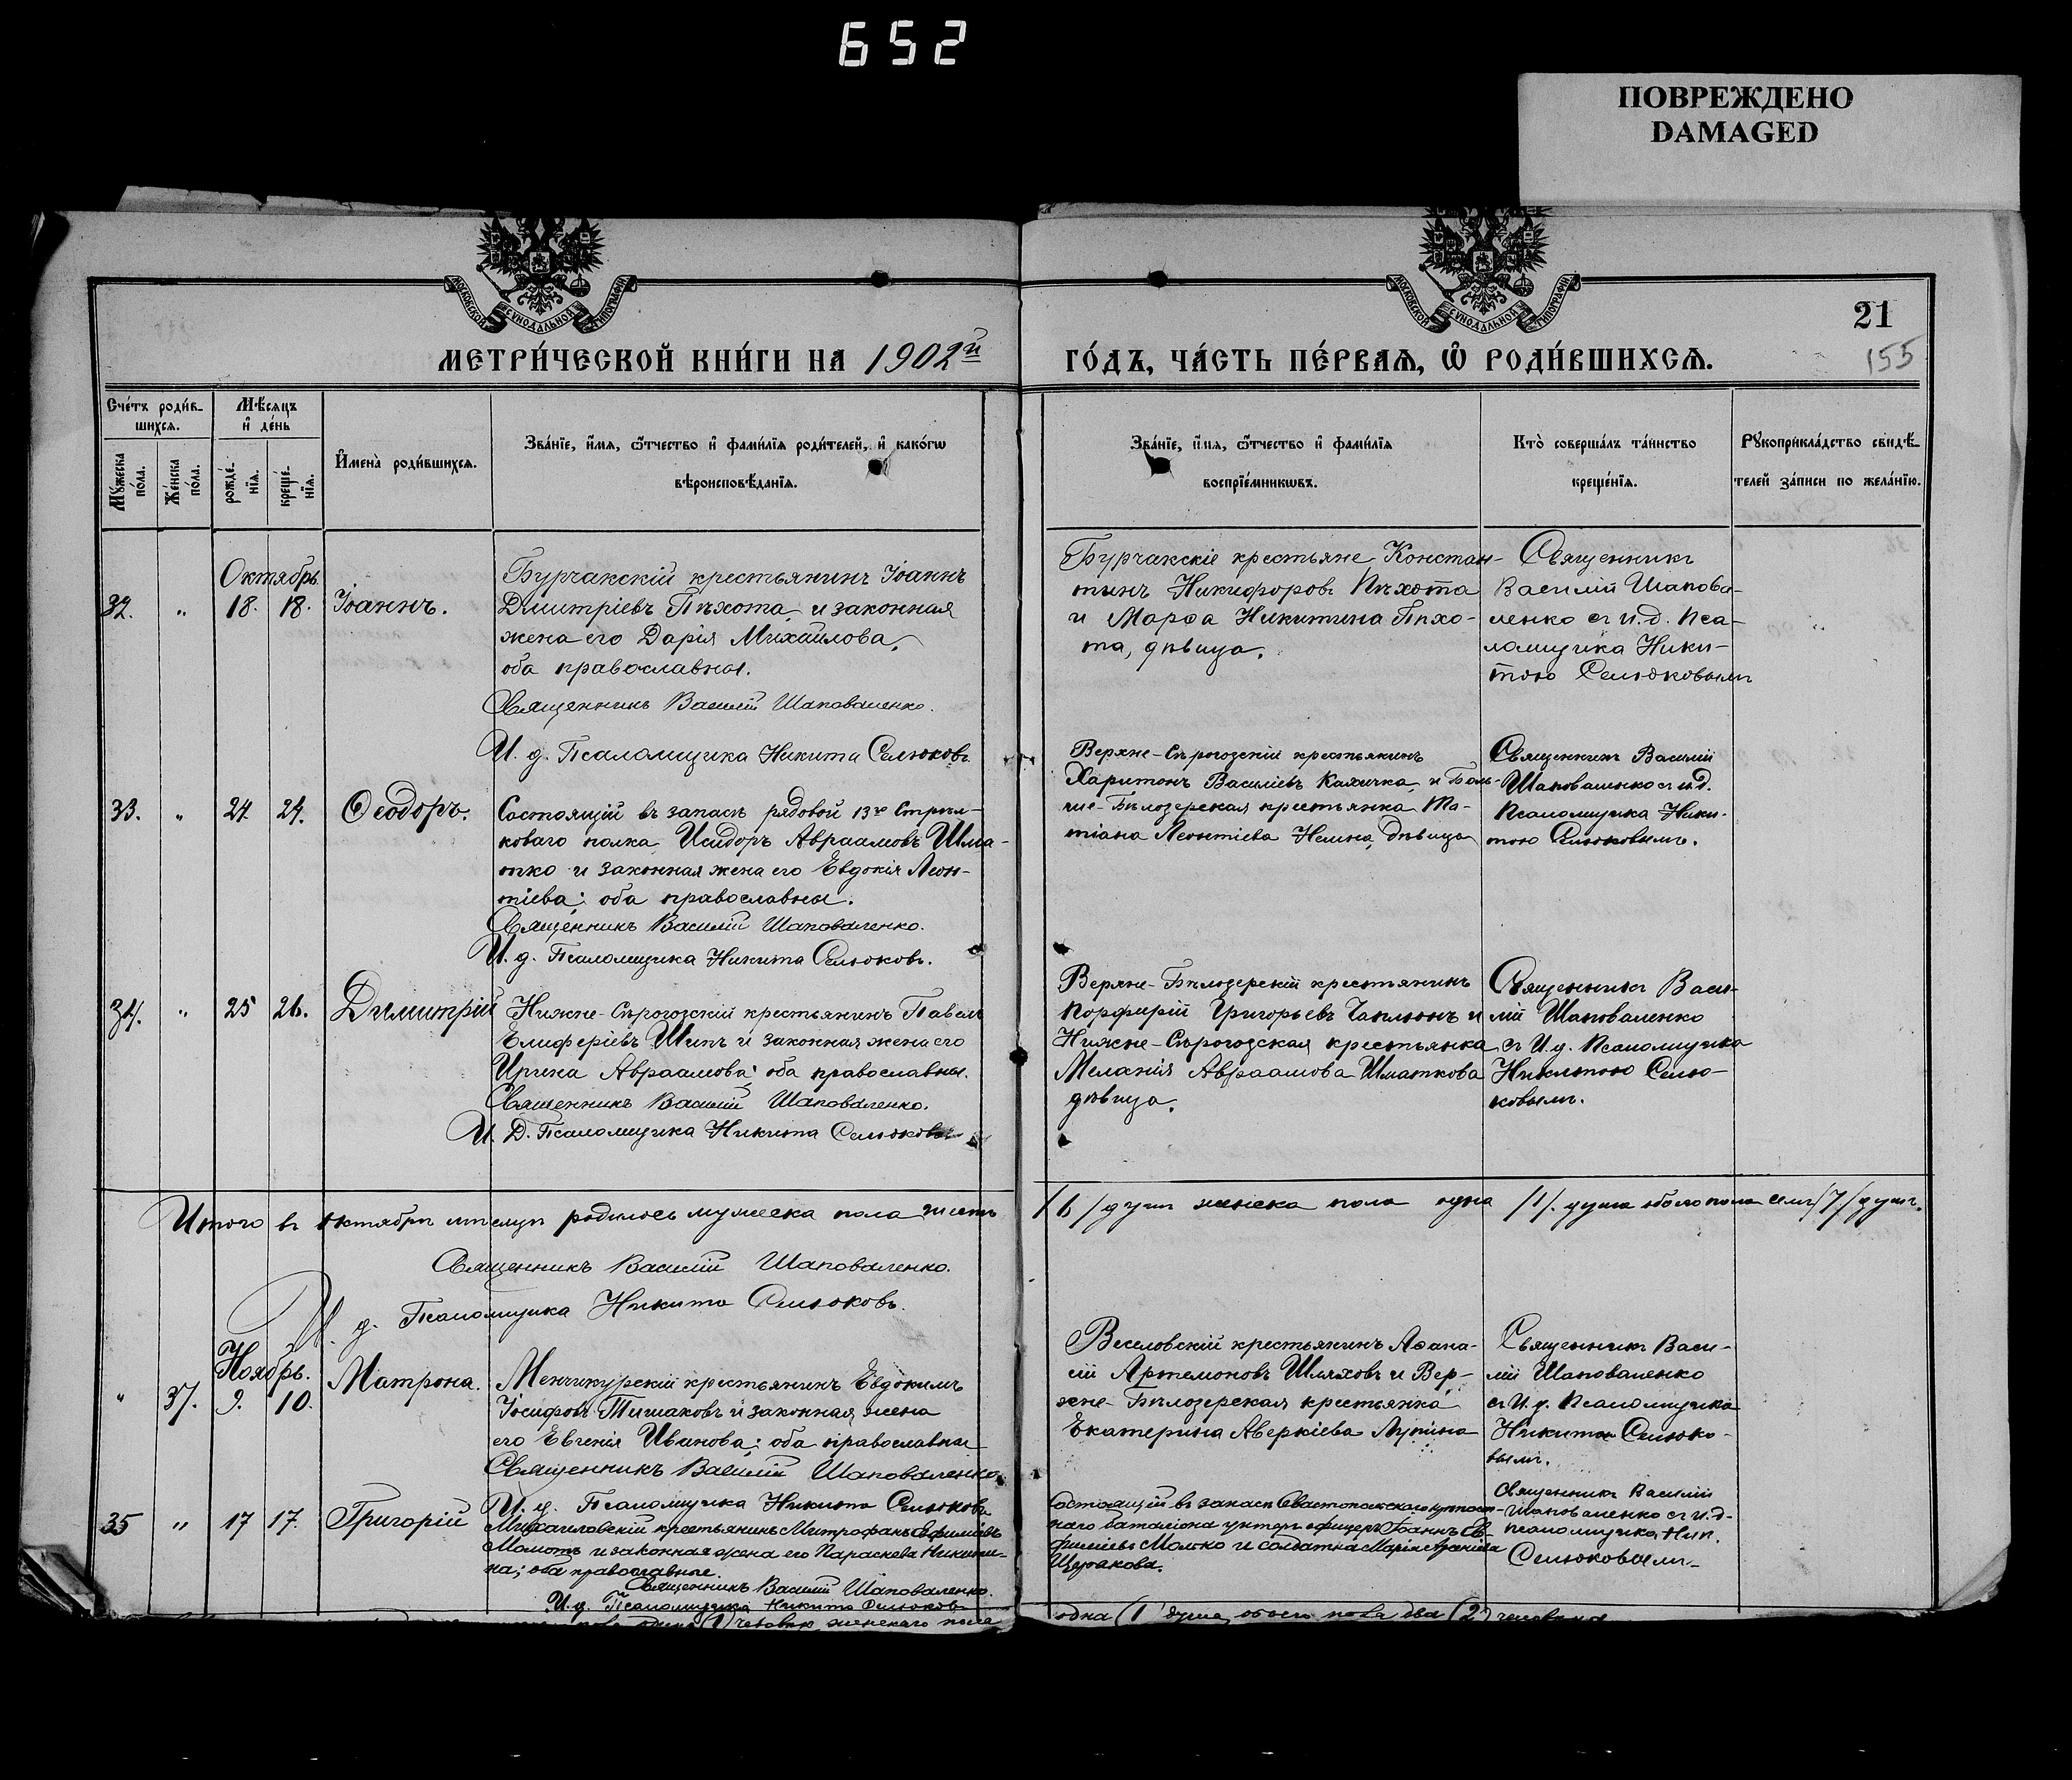 652
ПОВРЕЖДЕНО
DAMAGED
МОСКОВСКОЙ СѴНОДАЛЬНОЙ ТИПОГРАФІИ
МОСКОВСКОЙ СѴНОДАЛЬНОЙ ТИПОГРАФІИ
21
155
МЕТРИ́ЧЕСКОЙ КНИ́ГИ НА 1902й
ГО́ДЪ, ЧА́СТЬ ПЕ́РВАѦ, Ѡ҆ РОДИ́ВШИХСѦ.
Сче́тъ роди́в-
шихсѧ.
Мѣ́сѧцъ
и҆ де́нь
Мꙋ́жеска
по́ла.
Же́нска
по́ла.
рожде́-
нїѧ.
креще́-
нїѧ.
И҆мена̀ роди́вшихсѧ.
Зва́нїе, и҆́мѧ, ѻ҆́тчество и҆ фами́лїѧ роди́телей, и҆ како́гѡ
вѣроисповѣ́данїѧ.
Зва́нїе, и҆́мѧ, ѻ҆́тчество и҆ фами́лїѧ
воспрїе́мникѡвъ.
Кто̀ соверша́лъ та́инство
креще́нїѧ.
Рꙋкоприкла́дство свидѣ́-
телей за́писи по жела́нїю.
Октябрь.
32. " 18. 18. Іоаннъ.
Бурчакскій крестьянинъ Іоаннъ
Дмитріевъ Пѣхота, и законная
жена его Дарія Михайлова,
оба православны.
Священникъ Василій Шаповаленко.
И. д. Псаломщика Никита Селюковъ
Бурчакскіе крестьяне Констан-
тинъ Никифоровъ Пѣхота
и Марѳа Никитина Пѣхо-
та, дѣвица.
Священникъ
Василій Шапова-
ленко съ и. д. Пса-
ломщика Ники-
тою Селюковымъ
33. " 24. 24. Ѳеодоръ.
Состоящій въ запасѣ рядовой 13го Стрѣл-
коваго полка, Исидоръ Авраамовъ Шма-
тко и законная жена его Евдокія Леон-
тіева; оба православны.
Священникъ Василій Шаповаленко.
И. д. Псаломщика Никита Селюковъ.
Верхне-Сѣрогозскій крестьянинъ
Харитонъ Василіевъ Кахичка, и Боль-
ше-Бѣлозерская крестьянка Та-
тіана Леонтіева дѣвица
Священникъ Василій
Шаповаленко съ и. д.
Псаломщика Ники-
тою Селюковымъ.
34. " 25 26. Димитрій
Нижне-Сѣрогозскій крестьянинъ Павелъ
Елиферіевъ Шипъ и законная жена его
Ирина Авраамова; оба православны.
Священникъ Василій Шаповаленко.
И. Д. Псаломщика Никита Селюковъ
Верхне-Бѣлозерскій крестьянинъ
Порфирій Григорьевъ Чаплюнъ и
Нижне-Сѣрогозская крестьянка
Меланія Авраамова Шматкова
дѣвица.
Священникъ Васи-
лій Шаповаленко
съ И. д. Псаломщика
Никитою Селю-
ковымъ.
Итого въ октябрѣ мѣсяцѣ родилось мужеска пола шесть /6/ душъ женска пола одна /1/. душа обоего пола семь /7/ душъ.
Священникъ Василій Шаповаленко.
И. д. Псаломщика Никита Селюковъ.
Ноябрь.
" 37. 9. 10. Матрона.
Менчикурскій крестьянинъ Евдокимъ
Іосифовъ Тишаковъ и законная жена
его Евгенія Иванова; оба православны
Священникъ Василій Шаповаленко
И. д. Псаломщика Никита Селюковъ
Веселовскій крестьянинъ Аѳана-
сій Артемоновъ Шляховъ и Вер-
хне-Бѣлозерская крестьянка
Екатерина Аверкіева Лупина
Священникъ Васи-
лій Шаповаленко
съ И. д. Псаломщика
Никитою Селюко-
вымъ.
35 " 17 17. Григорій
Михайловскій крестьянинъ Митрофанъ Ефиміевъ
Молотъ и законная жена его Параскева Никити-
на; оба православные.
Священникъ Василій Шаповаленко.
И. д. Псаломщика Никита Селюковъ
Состоящій въ запасѣ Севастопольскаго
наго баталіона унтеръ офицеръ Іоаннъ Ев-
фиміевъ Молтко и солдатка Марія
Щербакова.
Священникъ Василій
Шаповаленко съ и. д-
псаломщика Ник.
Селюковымъ-
одинъ (1) человѣкъ женскаго пола одна (1) душа, обоего пола два (2) человѣка